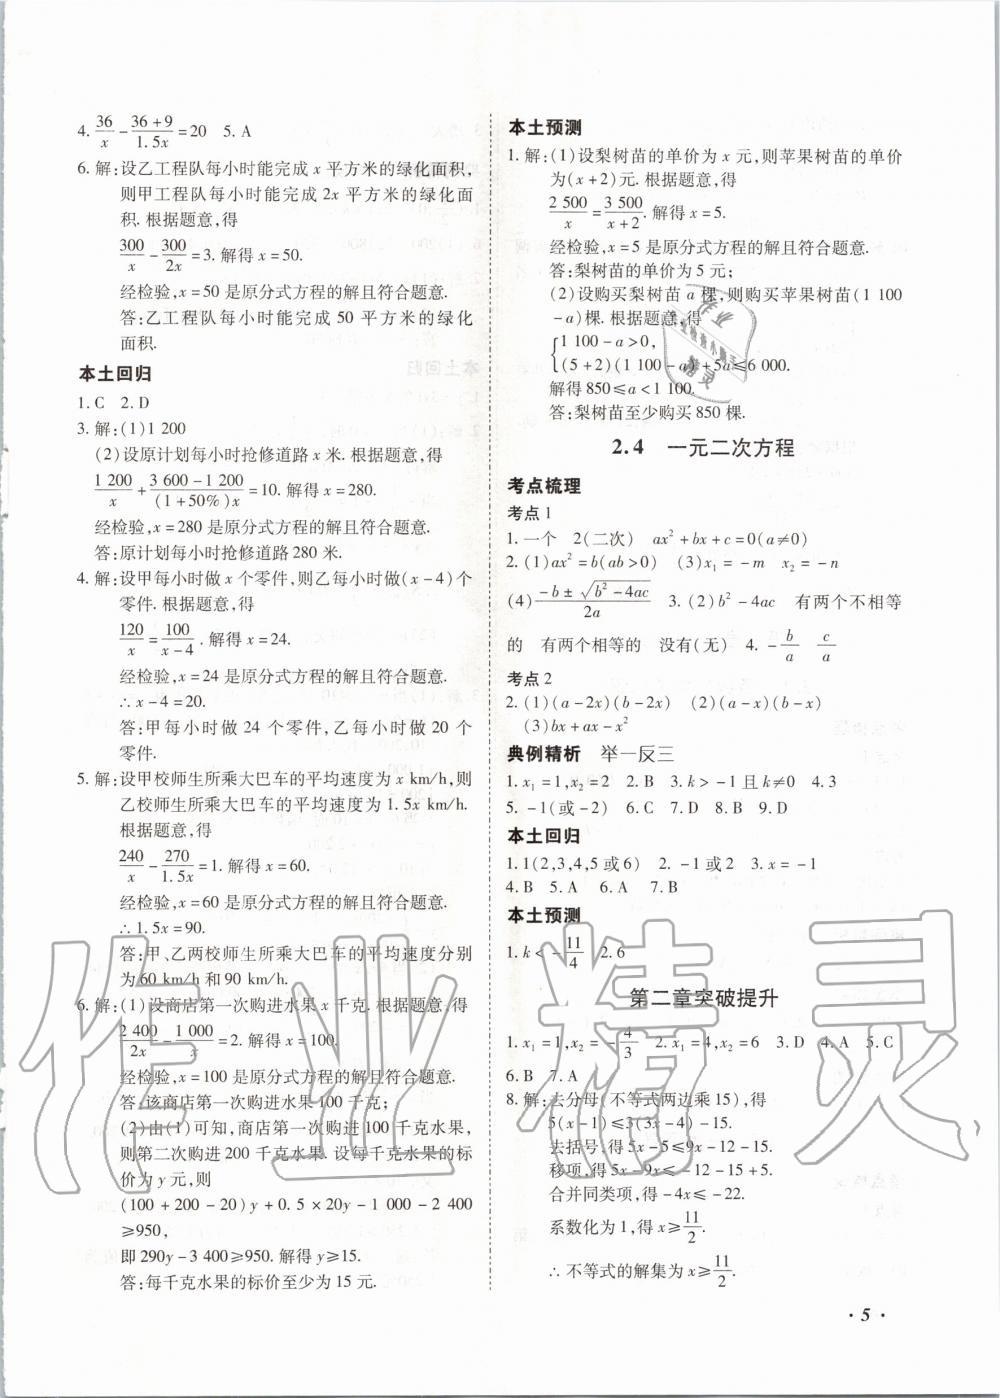 4. 36/x - (36+9)/1.5x = 20 5. A
6. 解:设乙工程队每小时能完成 x 平方米的绿化面积,
则甲工程队每小时能完成 2x 平方米的绿化面
积. 根据题意,得
300/x - 300/2x = 3. 解得 x = 50.
经检验,x = 50 是原分式方程的解且符合题意.
答:乙工程队每小时能完成 50 平方米的绿化
面积.
本土回归
1. C 2. D
3. 解:(1)1 200
(2)设原计划每小时抢修道路 x 米. 根据题意,得
1 200/x + (3 600-1 200)/(1+50%)x = 10. 解得 x = 280.
经检验,x = 280 是原分式方程的解且符合题意.
答:原计划每小时抢修道路 280 米.
4. 解:设甲每小时做 x 个零件,则乙每小时做(x-4)个
零件. 根据题意,得
120/x = 100/(x-4). 解得 x = 24.
经检验,x = 24 是原分式方程的解且符合题意.
∴ x-4=20.
答:甲每小时做 24 个零件,乙每小时做 20 个
零件.
5. 解:设甲校师生所乘大巴车的平均速度为 x km/h,则
乙校师生所乘大巴车的平均速度为 1.5x km/h.
根据题意,得
240/x - 270/1.5x = 1. 解得 x = 60.
经检验,x = 60 是原分式方程的解且符合题意.
∴ 1.5x = 90.
答:甲、乙两校师生所乘大巴车的平均速度分别
为 60 km/h 和 90 km/h.
6. 解:(1)设商店第一次购进水果 x 千克. 根据题意,得
2 400/2x - 1 000/x = 2. 解得 x = 100.
经检验,x = 100 是原分式方程的解且符合题意.
答:该商店第一次购进水果 100 千克;
(2)由(1)可知,商店第一次购进 100 千克水果,
则第二次购进 200 千克水果. 设每千克水果的标
价为 y 元,则
(100+200-20)y+0.5×20y-1 000-2 400
≥950,
即 290y-3 400≥950. 解得 y≥15.
答:每千克水果的标价至少为 15 元.
本土预测
1. 解:(1)设梨树苗的单价为 x 元,则苹果树苗的单价
为(x+2)元. 根据题意,得
2 500/x = 3 500/(x+2). 解得 x = 5.
经检验,x = 5 是原分式方程的解且符合题意.
答:梨树苗的单价为 5 元;
(2)设购买梨树苗 a 棵,则购买苹果树苗(1 100
-a)棵. 根据题意,得
{1 100-a>0,
(5+2)(1 100-a)+5a≤6 000.
解得 850≤a<1 100.
答:梨树苗至少购买 850 棵.
2.4 一元二次方程
考点梳理
考点 1
1. 一个 2(二次) ax²+bx+c=0(a≠0)
2. (1)ax²=b(ab>0) (3)x₁=-m x₂=-n
(4)(-b±√(b²-4ac))/2a 3. (2)b²-4ac 有两个不相等
的 有两个相等的 没有(无) 4. -b/a c/a
考点 2
2. (1)(a-2x)(b-2x) (2)(a-x)(b-x)
(3)bx+ax-x²
典例精析 举一反三
1. x₁=1,x₂=2 2. B 3. k>-1且k≠0 4. 3
5. -1(或-2) 6. C 7. D 8. B 9. D
本土回归
1. 1(2,3,4,5或6) 2. -1或2 3. x=-1
4. B 5. A 6. A 7. B
本土预测
1. k<-11/4 2. 6
第二章突破提升
1. x₁=1,x₂=-4/3 2. x₁=4,x₂=6 3. D 4. A 5. C
6. B 7. A
8. 解:去分母(不等式两边乘 15),得
5(x-1)≤3(3x-4)-15.
去括号,得 5x-5≤9x-12-15.
移项,得 5x-9x≤-12-15+5.
合并同类项,得 -4x≤-22.
系数化为 1,得 x≥11/2.
∴ 不等式的解集为 x≥11/2.
· 5 ·
作业精灵